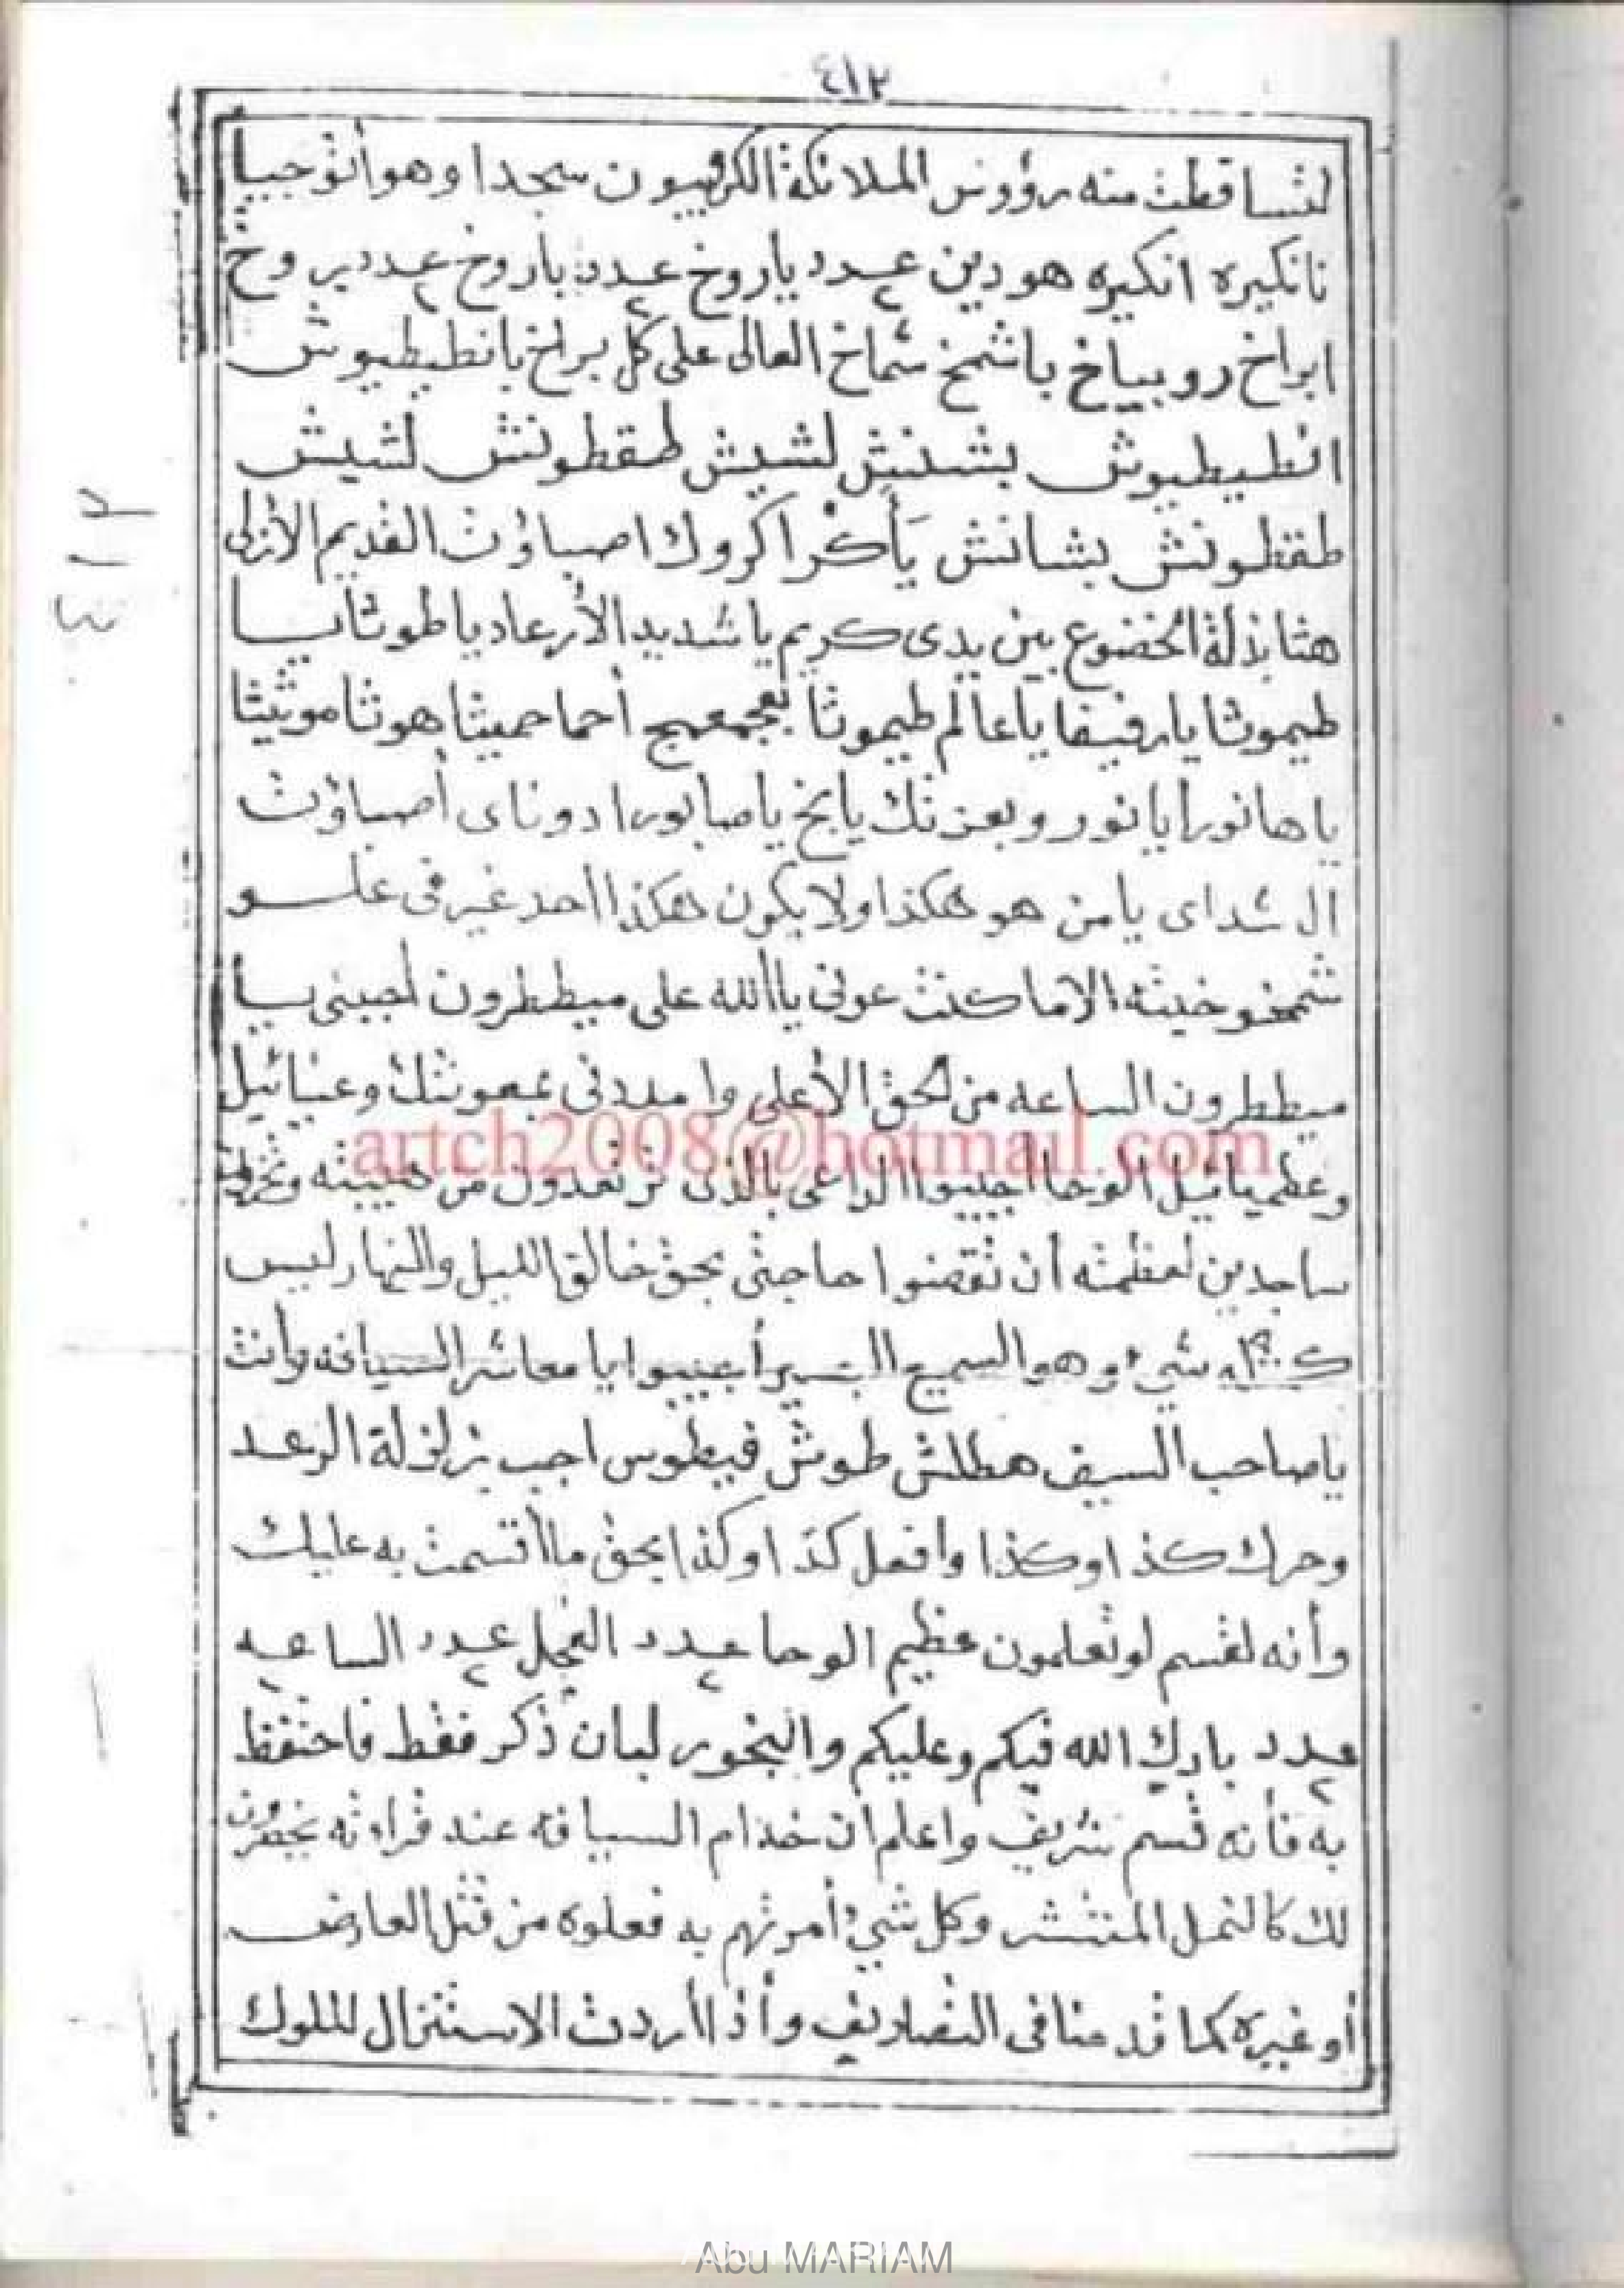 ٤١٢
لتساقطت منه رؤوس الملائكة الكروبيون سجدا وهو أنوخ جبيا
نانكيره انكيره هودين عدد ٢ ياروخ عدد ٢ باروخ عدد ٢ يروخ
ابراخ روبياخ باشمخ شماخ العالى على كل براخ بانطيطيوش
انطيطيوش بشلنش لشيش طقطونش لشيش
طقطونش بشانش يأكرا كروك اصباؤت القديم الأزلى
هثا بذلة الخضوع بين يدى كريم يا شديد الأرعاد يا طوثايا
طيموثا يا رفيفا يا عالم طيموثا أحما حميثا هوثا موثيثا
يا هانورا يا نور وبعزتك يا يخ يا صابورا دوناى أصباؤت
ال شداى يا من هو هكذا ولا يكون هكذا احد غيره فى علو
شموخيته الا ما كنت عونى يا الله على ميططرون أجبنى يا
ميططرون الساعه من لحق الأعلى وامددنى بمعونتك وعنيائيل
وعظميائيل الوحا اجيبوا الداعى بالذى ترتعدون من هيبته وتخروا
ساجدين لعظمته أن تقضوا حاجتى بحق خالق الليل والنهار ليس
كمثله شيء وهو السميع البصير أجيبوا يا معاشر السيافه وأنت
يا صاحب السيف هطلش طوش فيطوس اجب بزلزلة الرعد
وحرك كذا وكذا وافعل كذا وكذا بحق ما اقسمت به عليك
وأنه لقسم لو تعلمون عظيم الوحا عدد ٢ العجل عدد ٢ الساعه
عدد ٢ بارك الله فيكم وعليكم والبخور لبان ذكر فقط فاحتفظ
به فأنه قسم شريف واعلم ان خدام السيافه عند قراءته يحضرون
لك كالنمل المنتشر وكل شيء أمرتهم به فعلوه من قتل العارض
أو غيره كما قدمنا فى التصاريف وأذا أردت الاستنزال للملوك
٤١٢
artch2008@hotmail.com
Abu MARIAM